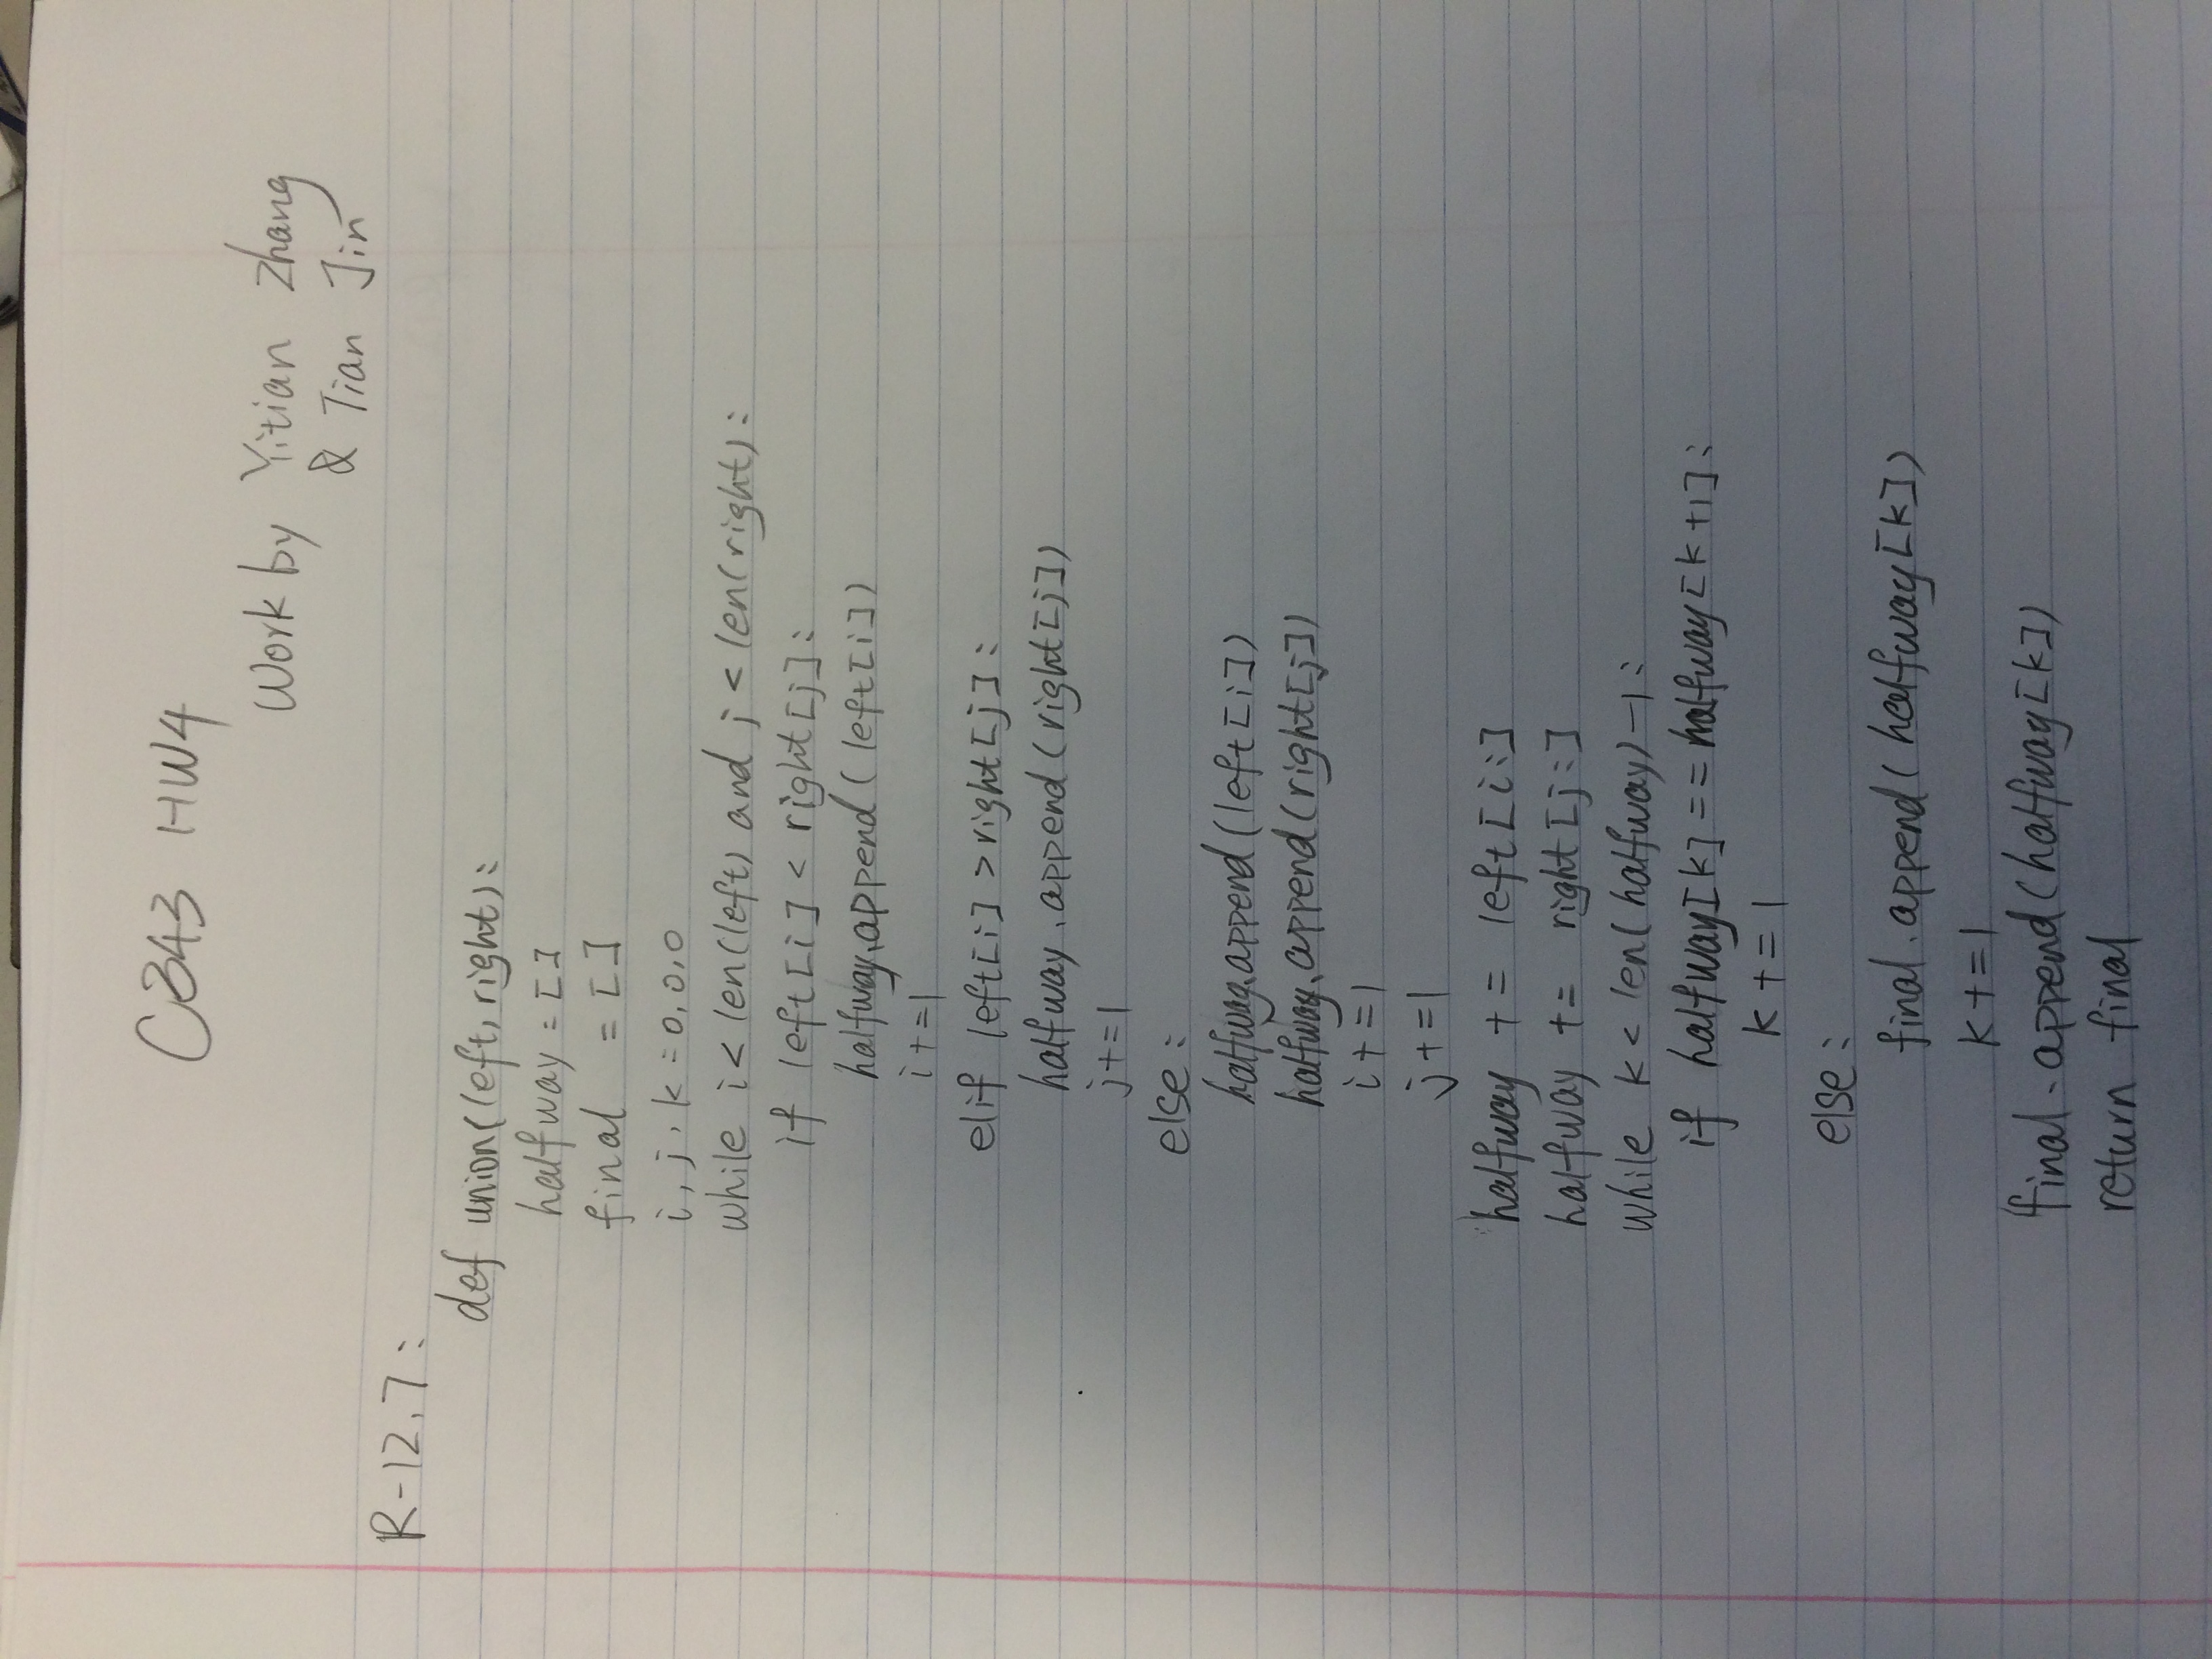 C343 HW4
Work by Yitian Zhang
& Tian Jin
R-12.7:
def union(left, right):
halfway = []
final = []
i, j, k = 0, 0, 0
while i < len(left) and j < len(right):
if left[i] < right[j]:
halfway.append(left[i])
i+=1
elif left[i] > right[j]:
halfway.append(right[j])
j+=1
else:
halfway.append(left[i])
halfway.append(right[j])
i+=1
j+=1
halfway += left[i:]
halfway += right[j:]
while k < len(halfway)-1:
if halfway[k] == halfway[k+1]:
k += 1
else:
final.append(halfway[k])
k+=1
final.append(halfway[k])
return final